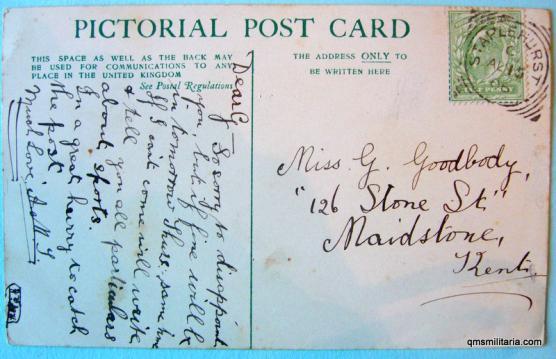 PICTORIAL POST CARD
THIS SPACE AS WELL AS THE BACK MAY
BE USED FOR COMMUNICATIONS TO ANY
PLACE IN THE UNITED KINGDOM
See Postal Regulations
THE ADDRESS ONLY TO
BE WRITTEN HERE
STAPLEHURST
C
AU 15
HALFPENNY
Dear G— So sorry to disappoint
you, but if fine will be
in tomorrow Thurs. same time
If I can't come will write
& tell you all particulars
about sports.
In a great hurry to catch
the post
Much Love
Miss G. Goodbody,
"126 Stone St"
Maidstone,
Kent.
qmsmilitaria.com